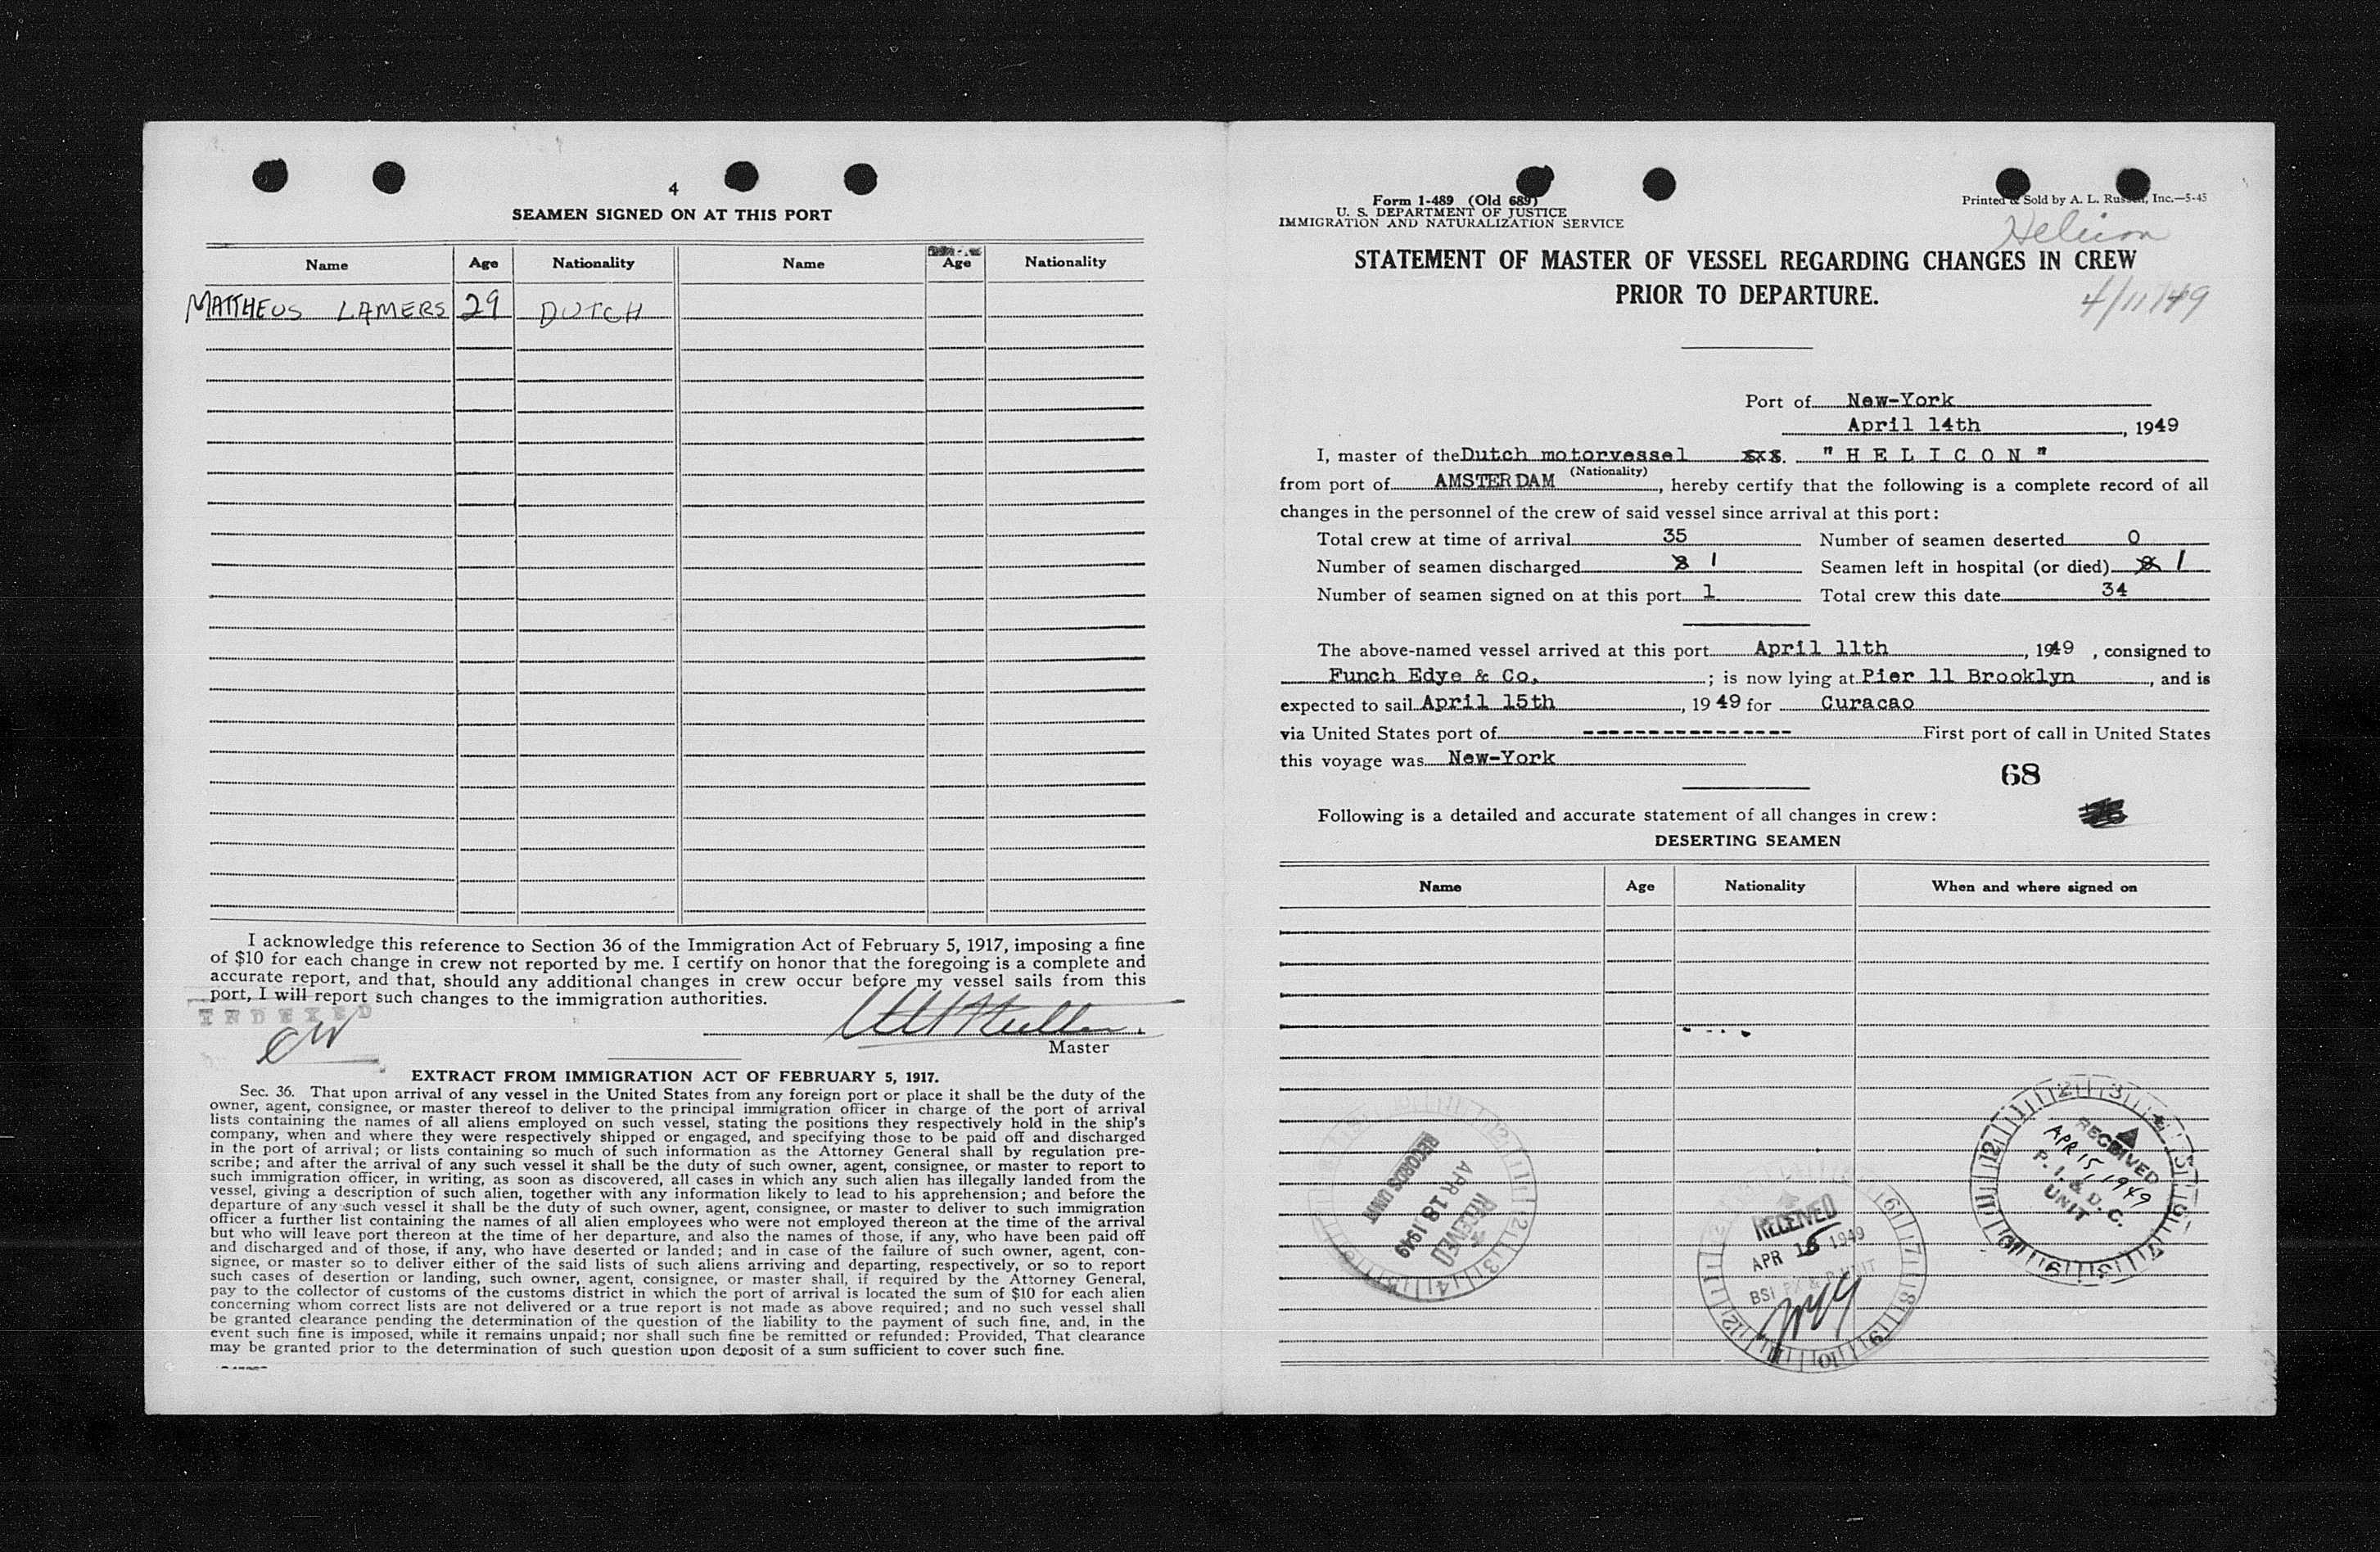 4
SEAMEN SIGNED ON AT THIS PORT
Name Age Nationality Name Age Nationality
MATTHEUS LAMERS 29 DUTCH
I acknowledge this reference to Section 36 of the Immigration Act of February 5, 1917, imposing a fine
of $10 for each change in crew not reported by me. I certify on honor that the foregoing is a complete and
accurate report, and that, should any additional changes in crew occur before my vessel sails from this
port, I will report such changes to the immigration authorities.
INDEXED
Master
EXTRACT FROM IMMIGRATION ACT OF FEBRUARY 5, 1917.
Sec. 36. That upon arrival of any vessel in the United States from any foreign port or place it shall be the duty of the
owner, agent, consignee, or master thereof to deliver to the principal immigration officer in charge of the port of arrival
lists containing the names of all aliens employed on such vessel, stating the positions they respectively hold in the ship's
company, when and where they were respectively shipped or engaged, and specifying those to be paid off and discharged
in the port of arrival; or lists containing so much of such information as the Attorney General shall by regulation pre-
scribe; and after the arrival of any such vessel it shall be the duty of such owner, agent, consignee, or master to report to
such immigration officer, in writing, as soon as discovered, all cases in which any such alien has illegally landed from the
vessel, giving a description of such alien, together with any information likely to lead to his apprehension; and before the
departure of any such vessel it shall be the duty of such owner, agent, consignee, or master to deliver to such immigration
officer a further list containing the names of all alien employees who were not employed thereon at the time of the arrival
but who will leave port thereon at the time of her departure, and also the names of those, if any, who have been paid off
and discharged and of those, if any, who have deserted or landed; and in case of the failure of such owner, agent, con-
signee, or master so to deliver either of the said lists of such aliens arriving and departing, respectively, or so to report
such cases of desertion or landing, such owner, agent, consignee, or master shall, if required by the Attorney General,
pay to the collector of customs of the customs district in which the port of arrival is located the sum of $10 for each alien
concerning whom correct lists are not delivered or a true report is not made as above required; and no such vessel shall
be granted clearance pending the determination of the question of the liability to the payment of such fine, and, in the
event such fine is imposed, while it remains unpaid; nor shall such fine be remitted or refunded: Provided, That clearance
may be granted prior to the determination of such question upon deposit of a sum sufficient to cover such fine.
Form 1-489 (Old 689)
U. S. DEPARTMENT OF JUSTICE
IMMIGRATION AND NATURALIZATION SERVICE
Printed & Sold by A. L. Russell, Inc.—5-45
Helicon
STATEMENT OF MASTER OF VESSEL REGARDING CHANGES IN CREW
PRIOR TO DEPARTURE.
4/11/49
Port of New-York
April 14th, 1949
I, master of the Dutch motorvessel "HELICON"
(Nationality)
from port of AMSTERDAM, hereby certify that the following is a complete record of all
changes in the personnel of the crew of said vessel since arrival at this port:
Total crew at time of arrival 35 Number of seamen deserted 0
Number of seamen discharged 1 Seamen left in hospital (or died) 1
Number of seamen signed on at this port 1 Total crew this date 34
The above-named vessel arrived at this port April 11th, 1949, consigned to
Funch Edye & Co. ; is now lying at Pier 11 Brooklyn, and is
expected to sail April 15th, 1949 for Curacao
via United States port of ---------------- First port of call in United States
this voyage was New-York
68
Following is a detailed and accurate statement of all changes in crew:
DESERTING SEAMEN
Name Age Nationality When and where signed on
RECEIVED
APR 15, 1949
P. I. & D. C.
UNIT
RECORDS UNIT
APR 18 1949
RECEIVED
RECEIVED
APR 1949
BSI
UNIT